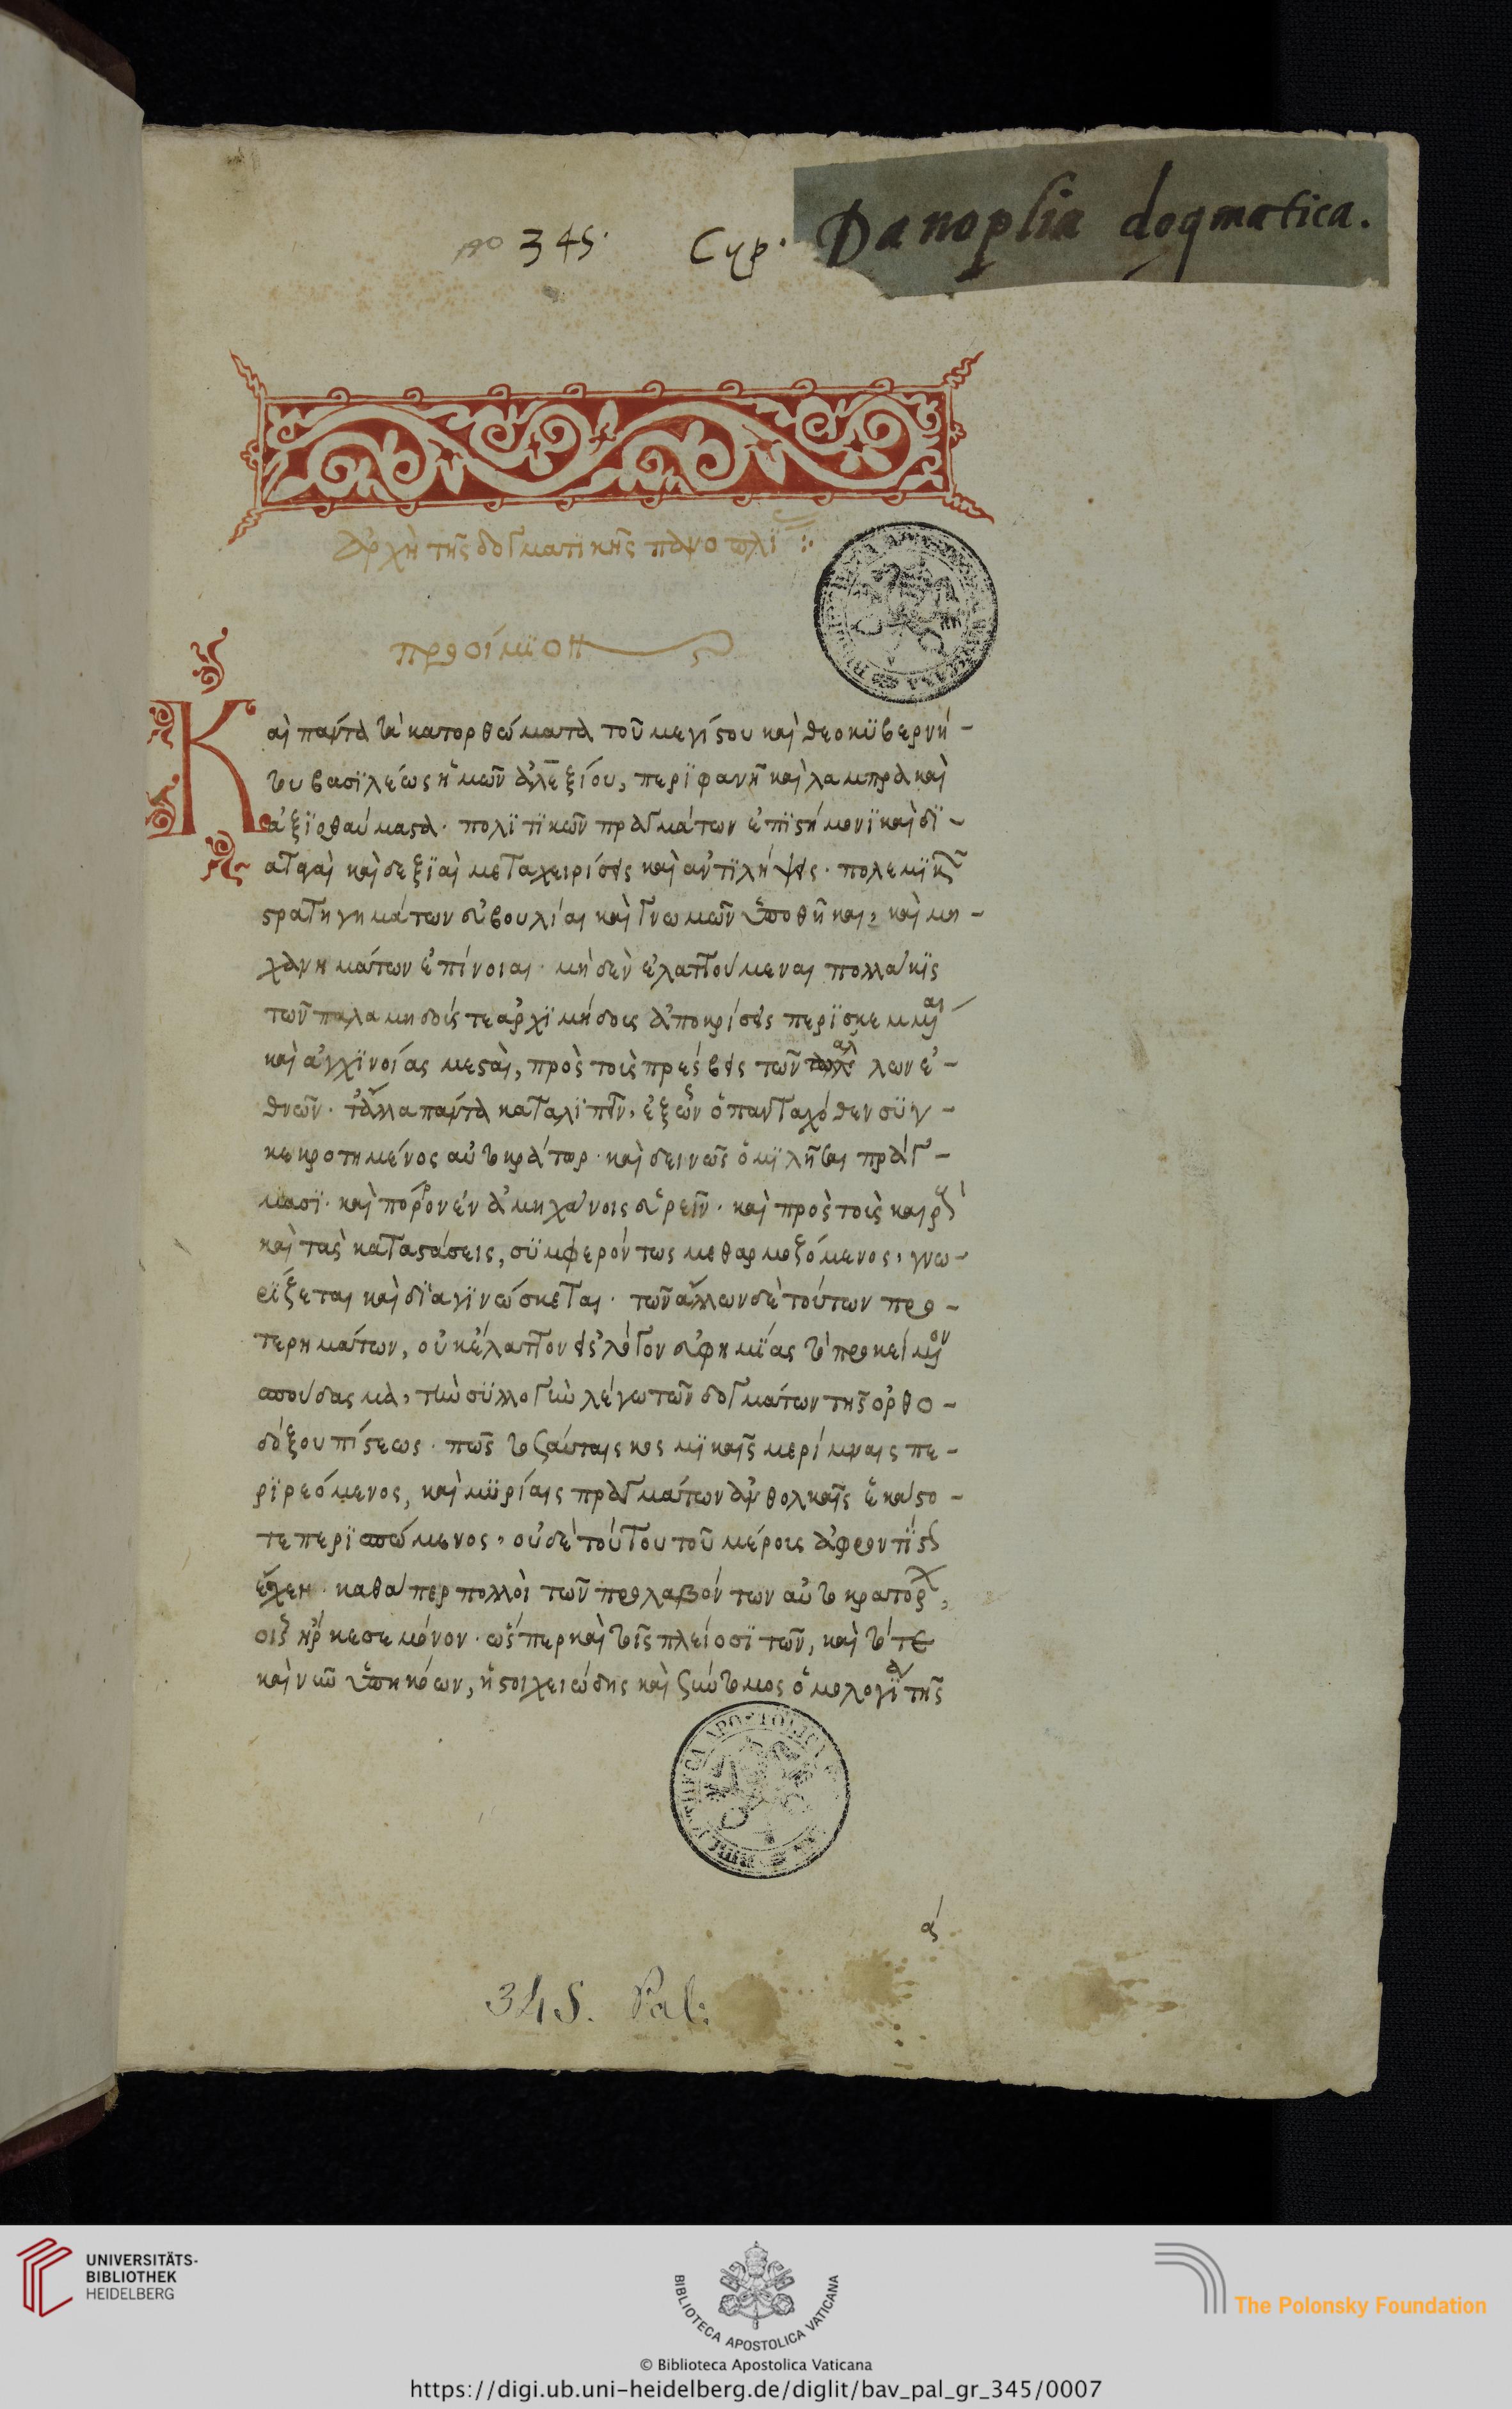 no 345. Cyp. Panoplia dogmatica.
ἀρχὴ τῆς δογματικῆς πανοπλί
προοίμιον
Καὶ πάντα τὰ κατορθώματα τοῦ μεγίστου καὶ θεοκυβερνή-
του βασιλέως ἡμῶν ἀλεξίου, περιφανῆ καὶ λαμπρὰ καὶ
ἀξιοθαύμαστα· πολιτικῶν πραγμάτων ἐπιστήμονι καὶ δϊ-
καὶ δεξιαὶ μεταχειρίσεις καὶ ἀντιλήψεις· πολεμικ
στρατηγημάτων εὐβουλίαι καὶ γνωμῶν ὑποθῆκαι, καὶ μη-
χανημάτων ἐπίνοιαι· μηδὲν ἐλαττούμεναι πολλάκις
τῶν παλαμήδους τε ἀρχιμήδους ἀποκρίσεις περιεσκεμμ
καὶ ἀγχινοίας μεσταὶ, πρὸς τοὺς πρέσβεις τῶν λων ἐ-
θνῶν· τἄλλα πάντα καταλιπεῖν, ἐξ ὧν ὁ πανταχόθεν συγ-
κεκροτημένος αὐτοκράτωρ· καὶ δεινῶς ὁμιλῆσαι πράγ-
μασι· καὶ πόρον ἐν ἀμηχάνοις εὑρεῖν· καὶ πρὸς τοὺς καιρ
καὶ τὰς καταστάσεις, συμφερόντως μεθαρμοζόμενος, γνω-
ρίζεται καὶ διαγινώσκεται· τῶν ἄλλων δὲ τούτων προ-
τερημάτων, οὐκ ἔλαττον εἰς λόγον εὐφημίας τὸ προκείμενον
σπούδασμα, τὴν συλλογὴν λέγω τῶν δογμάτων τῆς ὀρθο-
δόξου πίστεως· πῶς τοσαύταις κοσμικαῖς μερίμναις πε-
ριρεόμενος, καὶ μυρίαις πραγμάτων ἀνθολκαῖς ἑκάστο-
τε περισπώμενος, οὐδὲ τούτου τοῦ μέρους ἀφροντίστ
ἔσχεν· καθάπερ πολλοὶ τῶν προλαβόντων αὐτοκρατόρ,
οἷς ἤρκεσε μόνον· ὥσπερ καὶ τοῖς πλείοσι τῶν, καὶ τότε
καὶ νῦν ὑπηκόων, ἡ στοιχειώδης καὶ σύντομος ὁμολογία τῆς
ά
345. Pal:
UNIVERSITÄTS-
BIBLIOTHEK
HEIDELBERG
BIBLIOTECA APOSTOLICA VATICANA
The Polonsky Foundation
© Biblioteca Apostolica Vaticana
https://digi.ub.uni-heidelberg.de/diglit/bav_pal_gr_345/0007